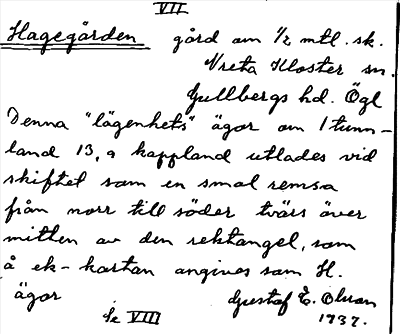 VII
Hagegården gård om 1/2 mtl. sk.
Vreta Kloster sn.
Gullbergs hd. Ögl
Denna "lägenhets" ägor om 1 tunn-
land 13,9 kappland utlades vid
skiftet som en smal remsa
från norr till söder tvärs över
mitten av den rektangel, som
å ek-kartan angives som H.
ägor
Gustaf E. Olsson
Se VIII
1937.